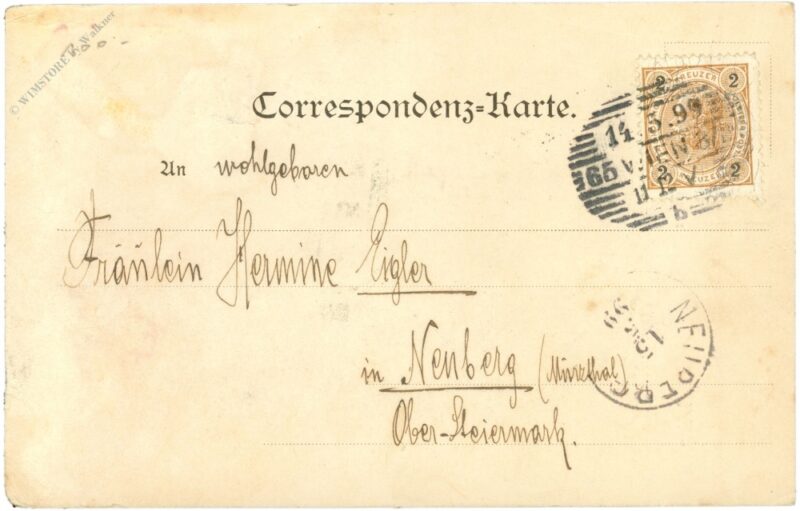 © WIMSTORE by Walkner
Correspondenz=Karte.
An wohlgeboren
Fräulein Hermine Eigler
in Neuberg (Mürzthal)
Ober-Steiermark.
2 KREUZER 2
2 KREUZER 2
14 5 99
65 WIEN
b
NEUBERG
99